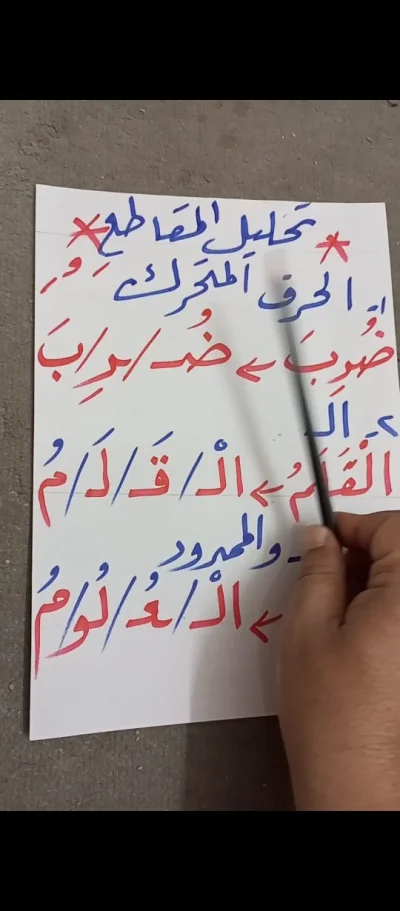 * تحليل المقاطع *
١- الحرف المتحرك َ ِ ُ
ضُرِبَ ← ضُـ / ـرِ / بَ
٢- الـ
الْقَلَمُ ← الْـ / قَـ / لَـ / مُ
- والممدود
← الْـ / عُـ / لُو / مُ